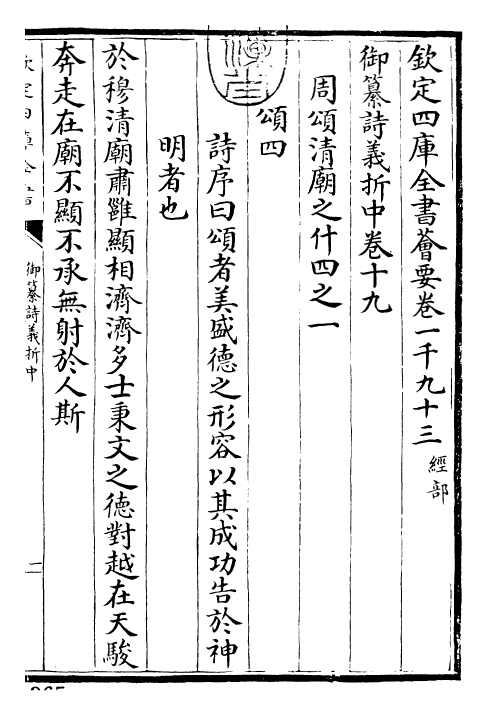 欽定四庫全書薈要卷一千九十三 經部
御纂詩義折中卷十九
周頌清廟之什四之一
頌四
詩序曰頌者美盛德之形容以其成功告於神
明者也
於穆清廟肅雝顯相濟濟多士秉文之德對越在天駿
奔走在廟不顯不承無射於人斯
御纂詩義折中